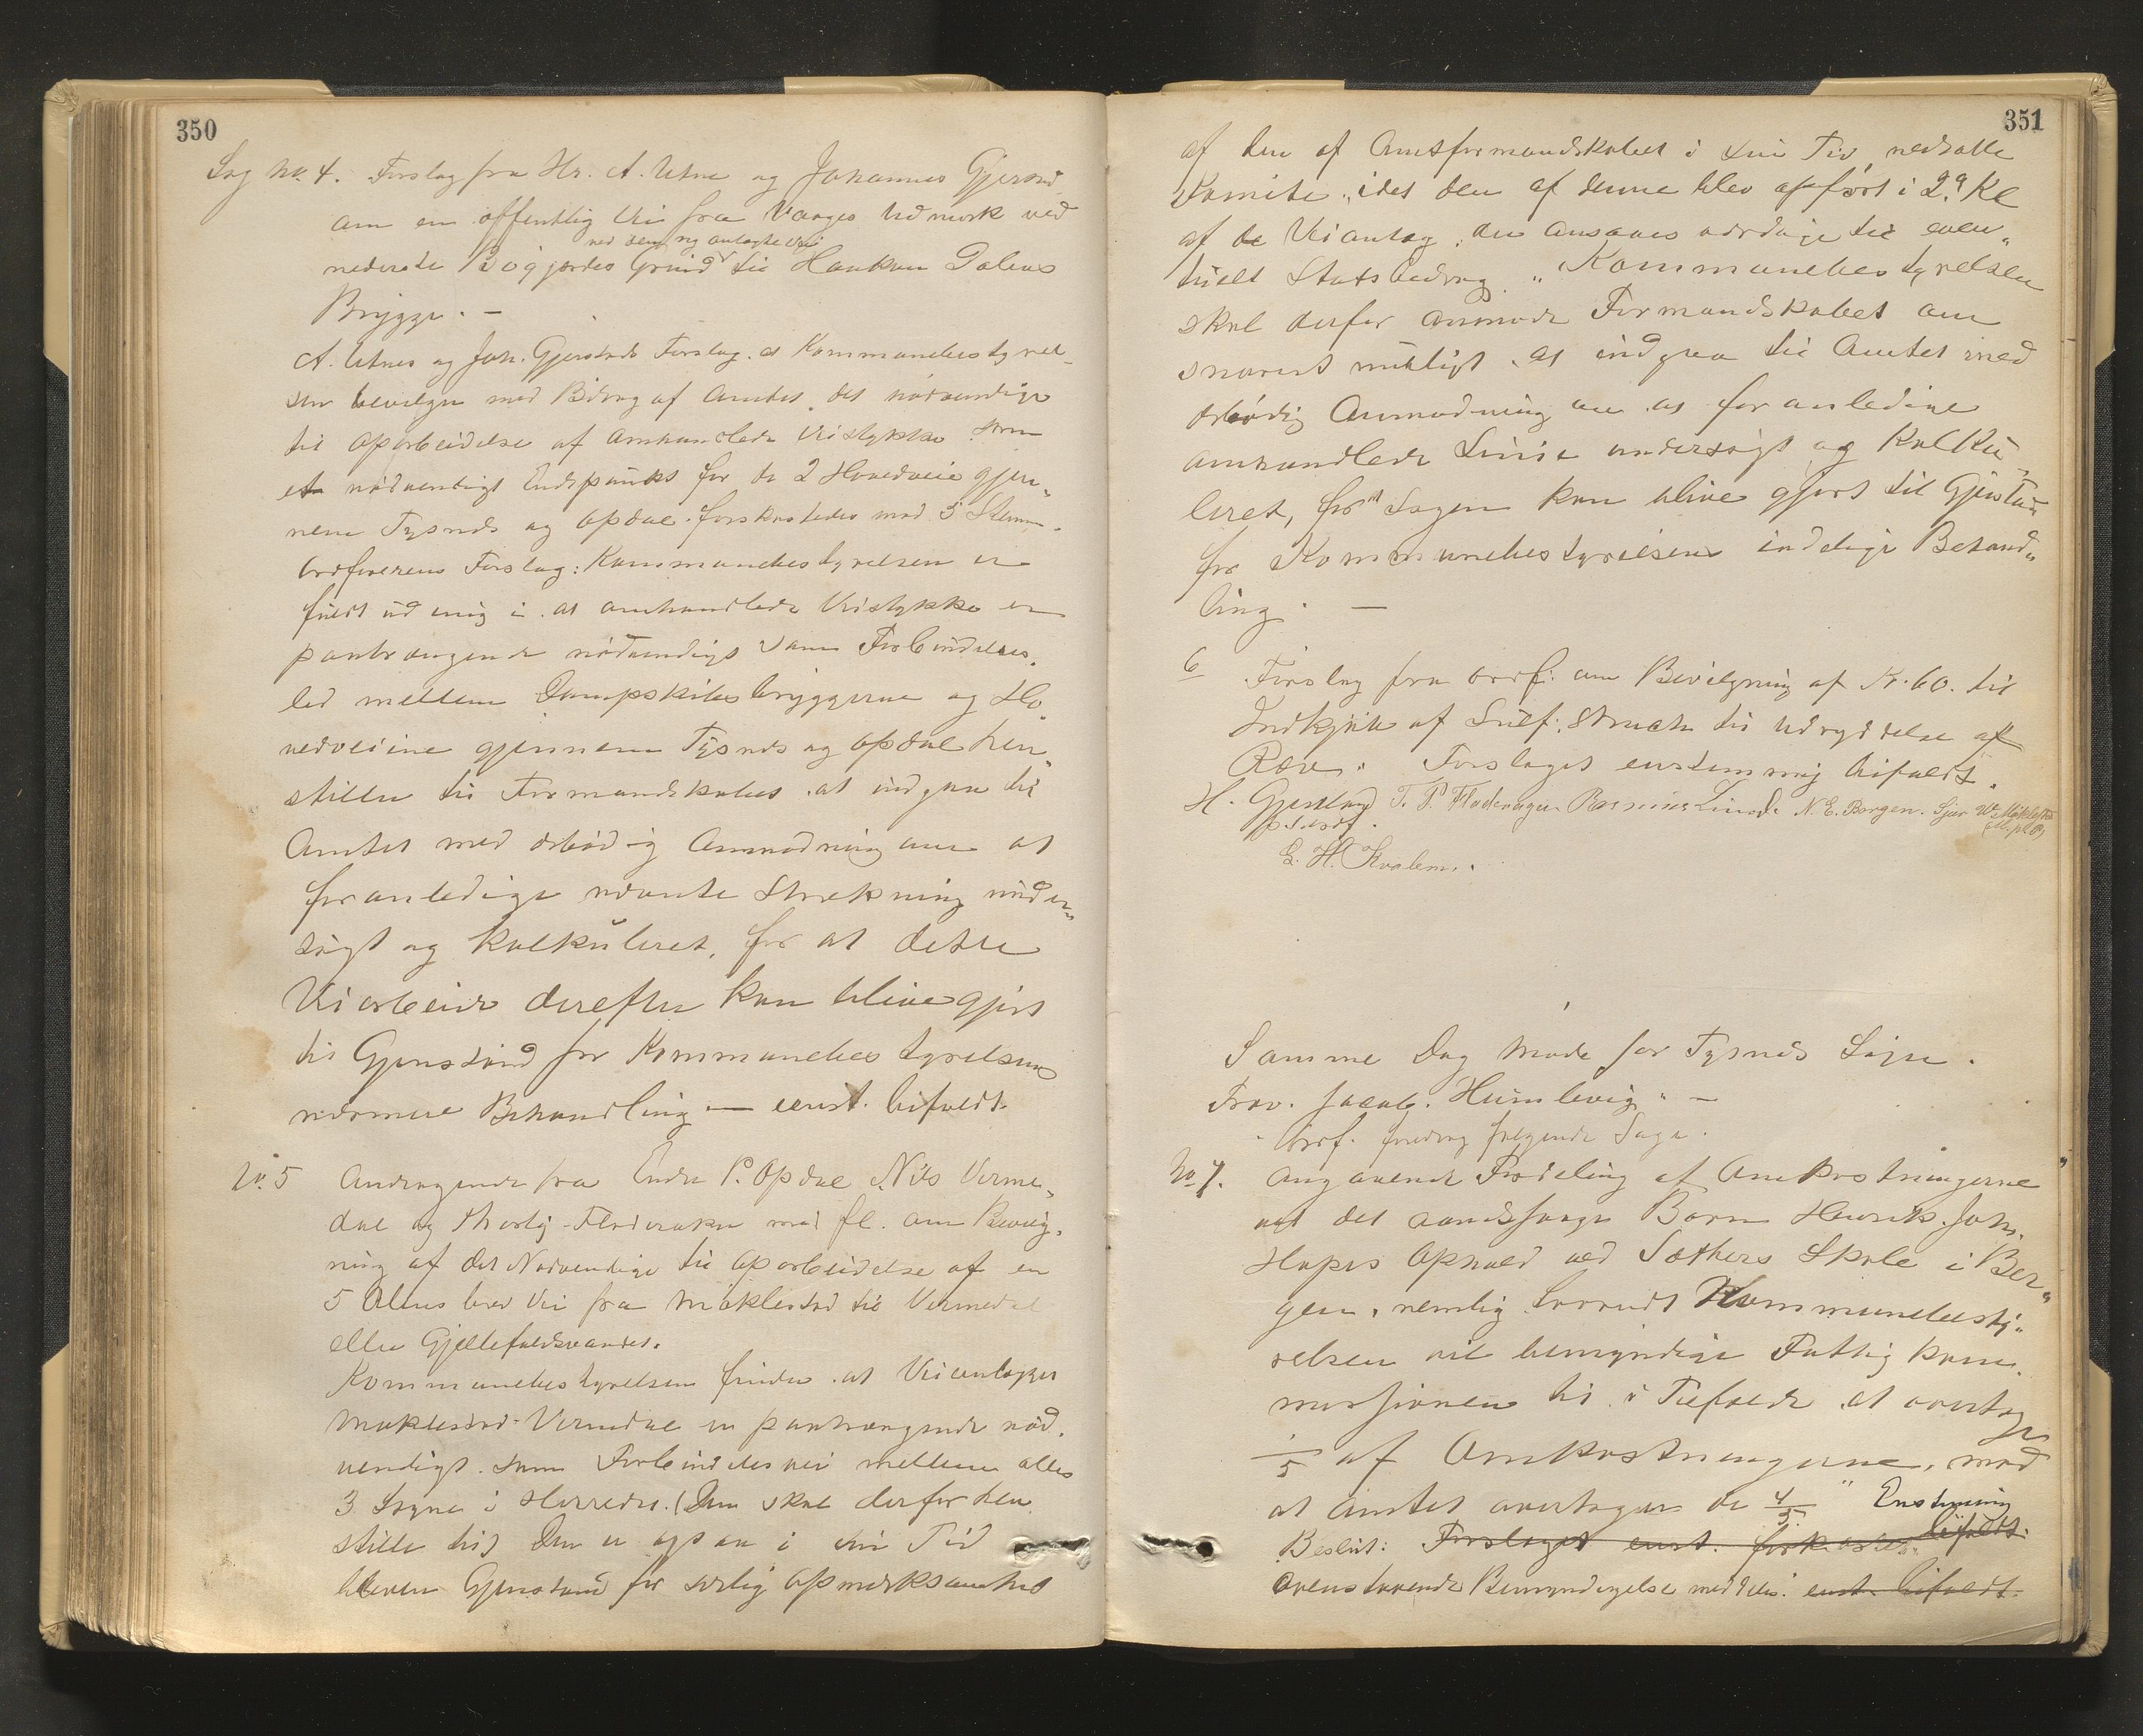 350
Sag No. 4. Forslag fra Hr. A. Utne og Johannes Gjersted
om en offentlig Vei fra Vaages Udmark ved
ved den ny anlagte Vei
nederste Bøgjordes Grind til Haakon Dalens
Brygge. —
A. Utnes og Joh. Gjersteds Forslag. at Kommunebestyrel-
sen bevilger med Bidrag af Amtet, det nødvendige
til Oparbeidelse af omhandlede Veistykke som
et nødvendigt Endepunkt for de 2 Hovedveie gjen„
nem Tysnes og Opdal. forkastedes mod 5 Stem.
Ordførerens Forslag: Kommunebestyrelsen er
fuldt ud enig i at omhandlede Veistykke er
paatrængende nødvendigt som Forbindelses„
led mellem Dampskibsbryggerne og Ho„
vedveiene gjennem Tysnes og Opdal hen„
stiller til Formandskabet at indgaa til
Amtet med ærbødig Anmodning om at
foranledige nævnte Strekning under„
søgt og kalkuleret, for at dette
Veiarbeide derefter kan blive gjort
til Gjenstand for Kommunebestyrelsens
nærmere Behandling — eenst. bifaldt.
No. 5 Andragende fra Endre P. Opdal Nils Verme„
dal og Flateraker med fl. om Bevilg„
ning af det Nødvendige til Oparbeidelse af en
5 Alens bred Vei fra Møklestad til Vermedal
eller Gjellefaldsvandet.
Kommunebestyrelsen finder at Veianlægget
Møklestad-Vermedal er paatrængende nød„
vendigt som Forbindelsesvei mellem alle
3 Sogne i Herredet. (Den skal derfor hen
stille til) Den er ogsaa i sin Tid
bleven Gjenstand for særlig Opmerksomhed
351
af den af Amtsformandskabet i sin Tid nedsatte
Komite, idet den af denne blev opført i 2. Kl
af de Veianlæg, der ansaaes værdige til even„
tuelt Statsbidrag. „ Kommunebestyrelsen
skal derfor anmode Formandskabet om
snarest muligt at indgaa til Amtet med
ærbødig Anmodning om at foranledige
omhandlede Linie undersøgt og kalku„
leret, før Sagen kan blive gjort til Gjenstand
for Kommunebestyrelsens endelige Behand„
ling. —
6 Forslag fra Ordf. om Bevilgning af Kr. 60. til
Indkjøb af Sulf. Struch til Udryddelse af
Ræv. Forslaget eenstemmig bifaldt.
H. Gjerstad T. P. Flateragen Rasmus Lunde N. E. Borgen. Sjur Wz. Møklestad
E. H. Kvalem.
Samme Dag Møde for Tysnes Sogn.
Frav. Jacob. Humlevig. —
Ordf. foredrog følgende Sager.
No 7. Angaaende Fordeling af Omkostningerne „
ved det aandssvage Barn Henrik Joh.
Hopes Ophold ved Sæthers Skole i Ber„
gen, nemlig hvorvidt Kommunebesty„
relsen vil bemyndige Fattigkom„
missionen til i Tilfælde at overtage
1/5 af Omkostningerne, mod
at Amtet overtager de 4/5 „ Enstemmig
bifaldt.
Beslut: Forslaget eenst. forkastes
Ovenstaaende Bemyndigelse meddeles. eenst. bifaldt.